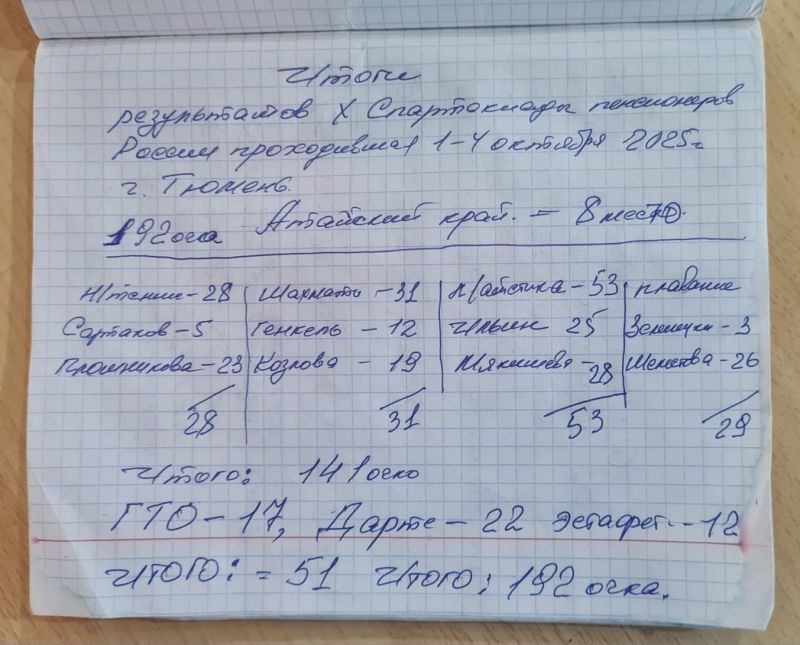 Итоги
результатов X Спартакиады пенсионеров
России проходившая 1-4 октября 2025г
г. Тюмень.
192 очка Алтайский край. – 8 место.
Н/теннис – 28 Шахматы – 31 Л/атлетика – 53 плавание
Сартаков – 5 Генкель – 12 Ильин 25 3
23 Козлова – 19 28 26
28 31 53 29
Итого: 141 очко
ГТО – 17, Дартс – 22 эстафет. – 12
Итого: = 51 Итого: 192 очка.